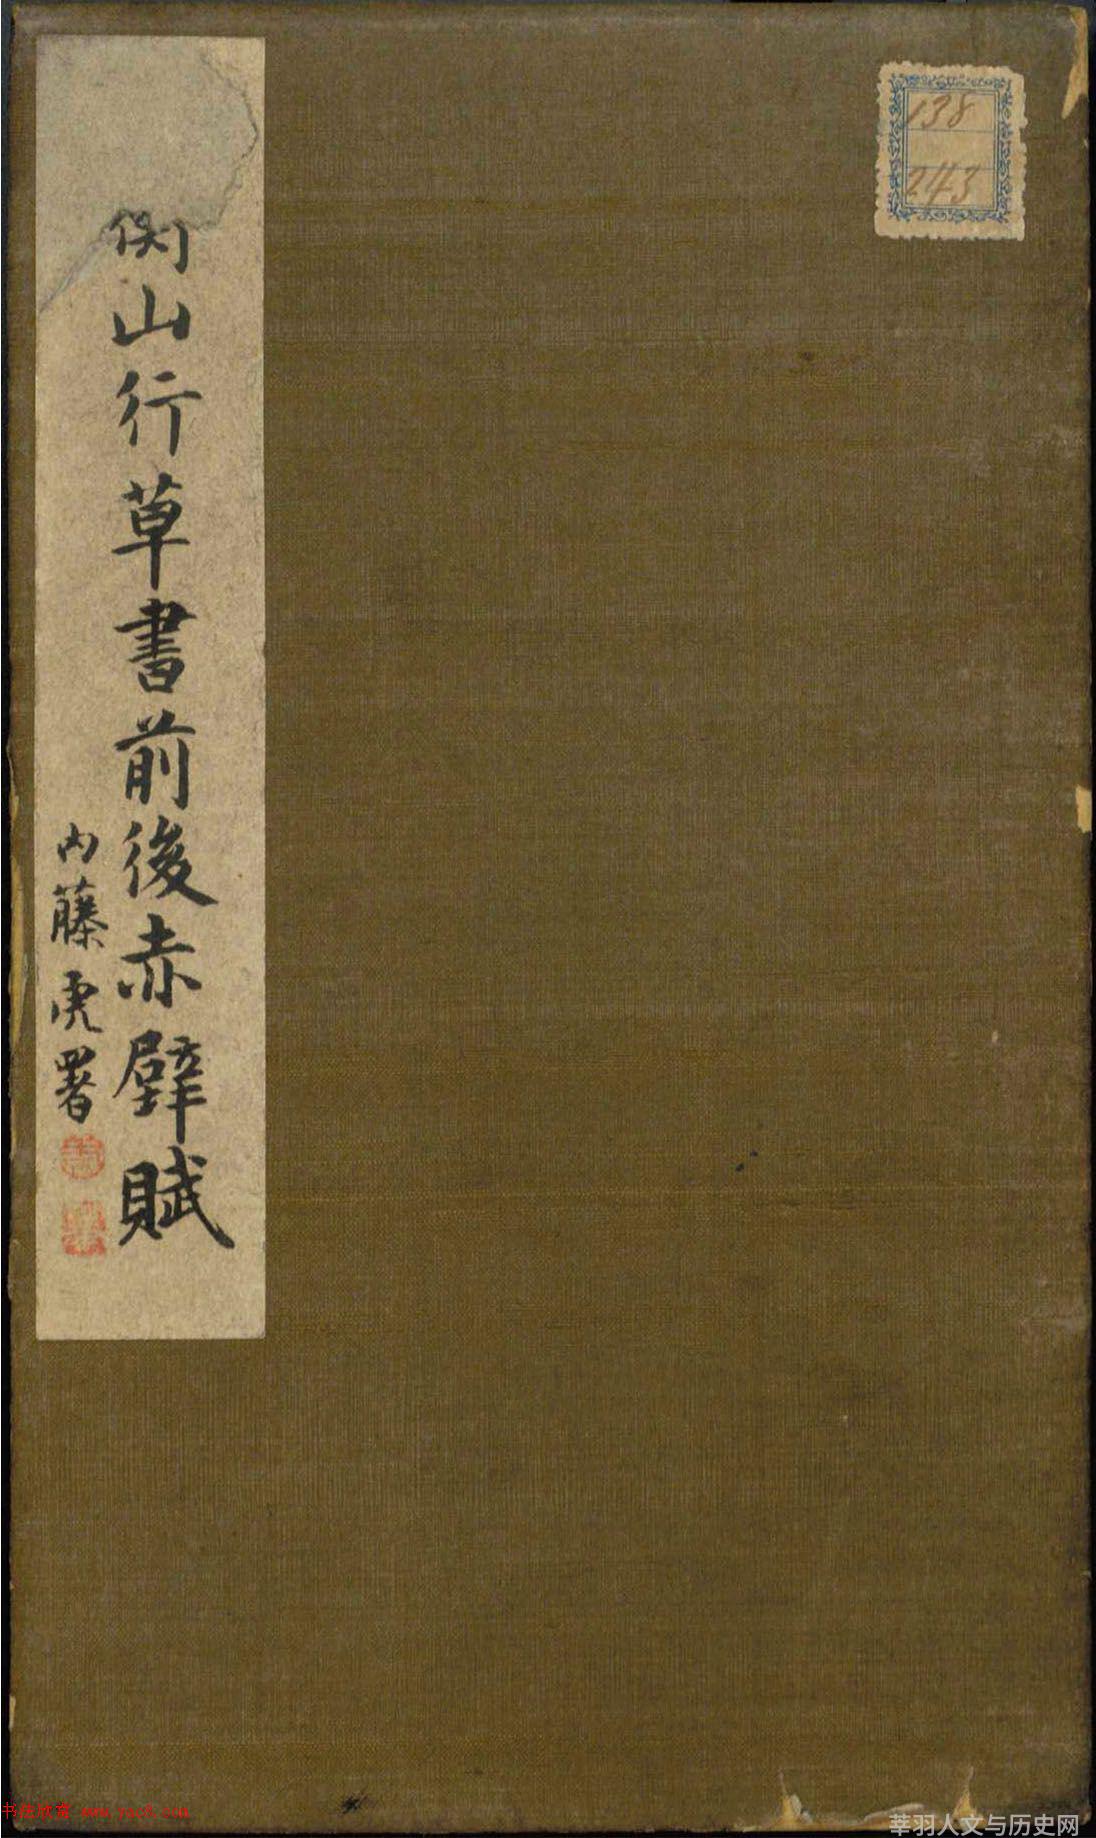 138
243
衡山行草書前後赤壁賦
内藤虎署
书法欣赏 www.yac8.com
莘羽人文与历史网